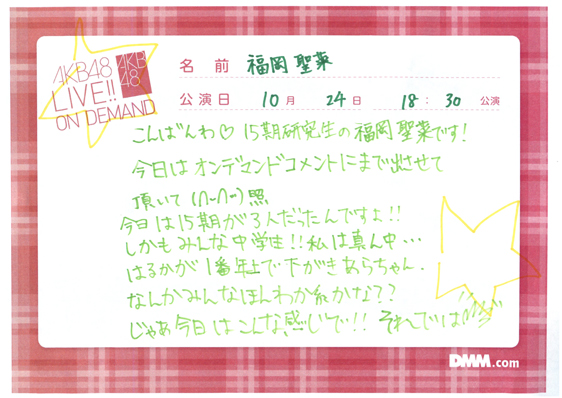 AKB48
LIVE!!
ON DEMAND
AKB
48
名 前 福岡 聖菜
公演日 10月 24日 18:30 公演
こんばんわ♡ 15期研究生の福岡聖菜です!
今日はオンデマンドコメントにまで出させて
頂いて (∩ー∩ー) 照
今日は15期が3人だったんですよ!!
しかもみんな中学生!!私は真ん中…
はるかが1番年上で下がきあらちゃん.
なんかみんなほんわか系かなぁ??
じゃあ今日はこんな感じで!! それでは
DMM.com